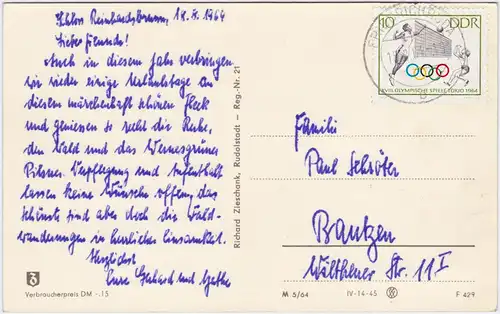 Schloss Reinhardsbrunn, 18.8.1964
Liebe Freunde!
Auch in diesem Jahr verbringen
wir wieder einige Urlaubstage an
diesem märchenhaft schönen Fleck
und geniessen so recht die Ruhe,
den Wald und das Wernesgrüner
Pilsner. Verpflegung und Aufenthalt
lassen keine Wünsche offen, das
Schönste sind aber doch die Wald-
wanderungen in herrlicher Einsamkeit.
Herzlichst
Eure Gerhard und
Verbraucherpreis DM -.15
Richard Zieschank, Rudolstadt - Reg.-Nr. 21
10 DDR
XVIII. OLYMPISCHE SPIELE TOKIO 1964
Familie
Paul Schröter
Bautzen
Wilthener Str. 11 I
M 5/64 IV-14-45 F 429